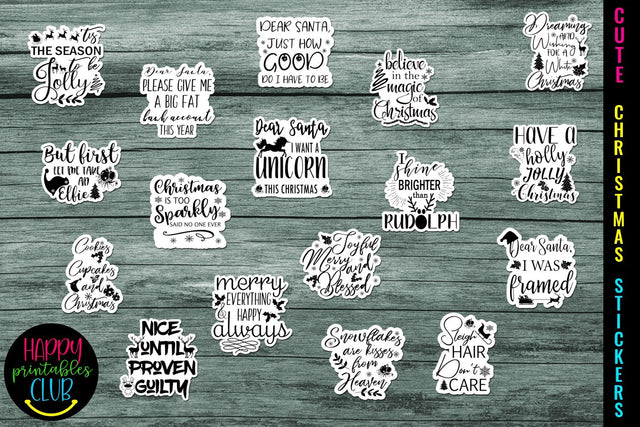 'tis
THE SEASON
to be
Jolly
DEAR SANTA,
JUST HOW
GOOD
DO I HAVE TO BE
Dreaming
AND
Wishing
FOR A
White
Christmas
believe
in the
magic
of
Christmas
Dear Santa,
PLEASE GIVE ME
A BIG FAT
bank account
THIS YEAR
Dear Santa
I WANT A
UNICORN
THIS CHRISTMAS
HAVE A
holly
JOLLY
Christmas
But first
LET ME TAKE
AN
Elfie
I
shine
BRIGHTER
than
RUDOLPH
Christmas
IS TOO
Sparkly
SAID NO ONE EVER
Cookies
Cupcakes
and
Christmas
Joyful
Merry
and
Blessed
Dear Santa,
I WAS
framed
merry
EVERYTHING
&
HAPPY
always
NICE
UNTIL
PROVEN
GUILTY
Snowflakes
are kisses
from
Heaven
Sleigh
HAIR
Don't
CARE
HAPPY
printables
CLUB
CUTE CHRISTMAS STICKERS